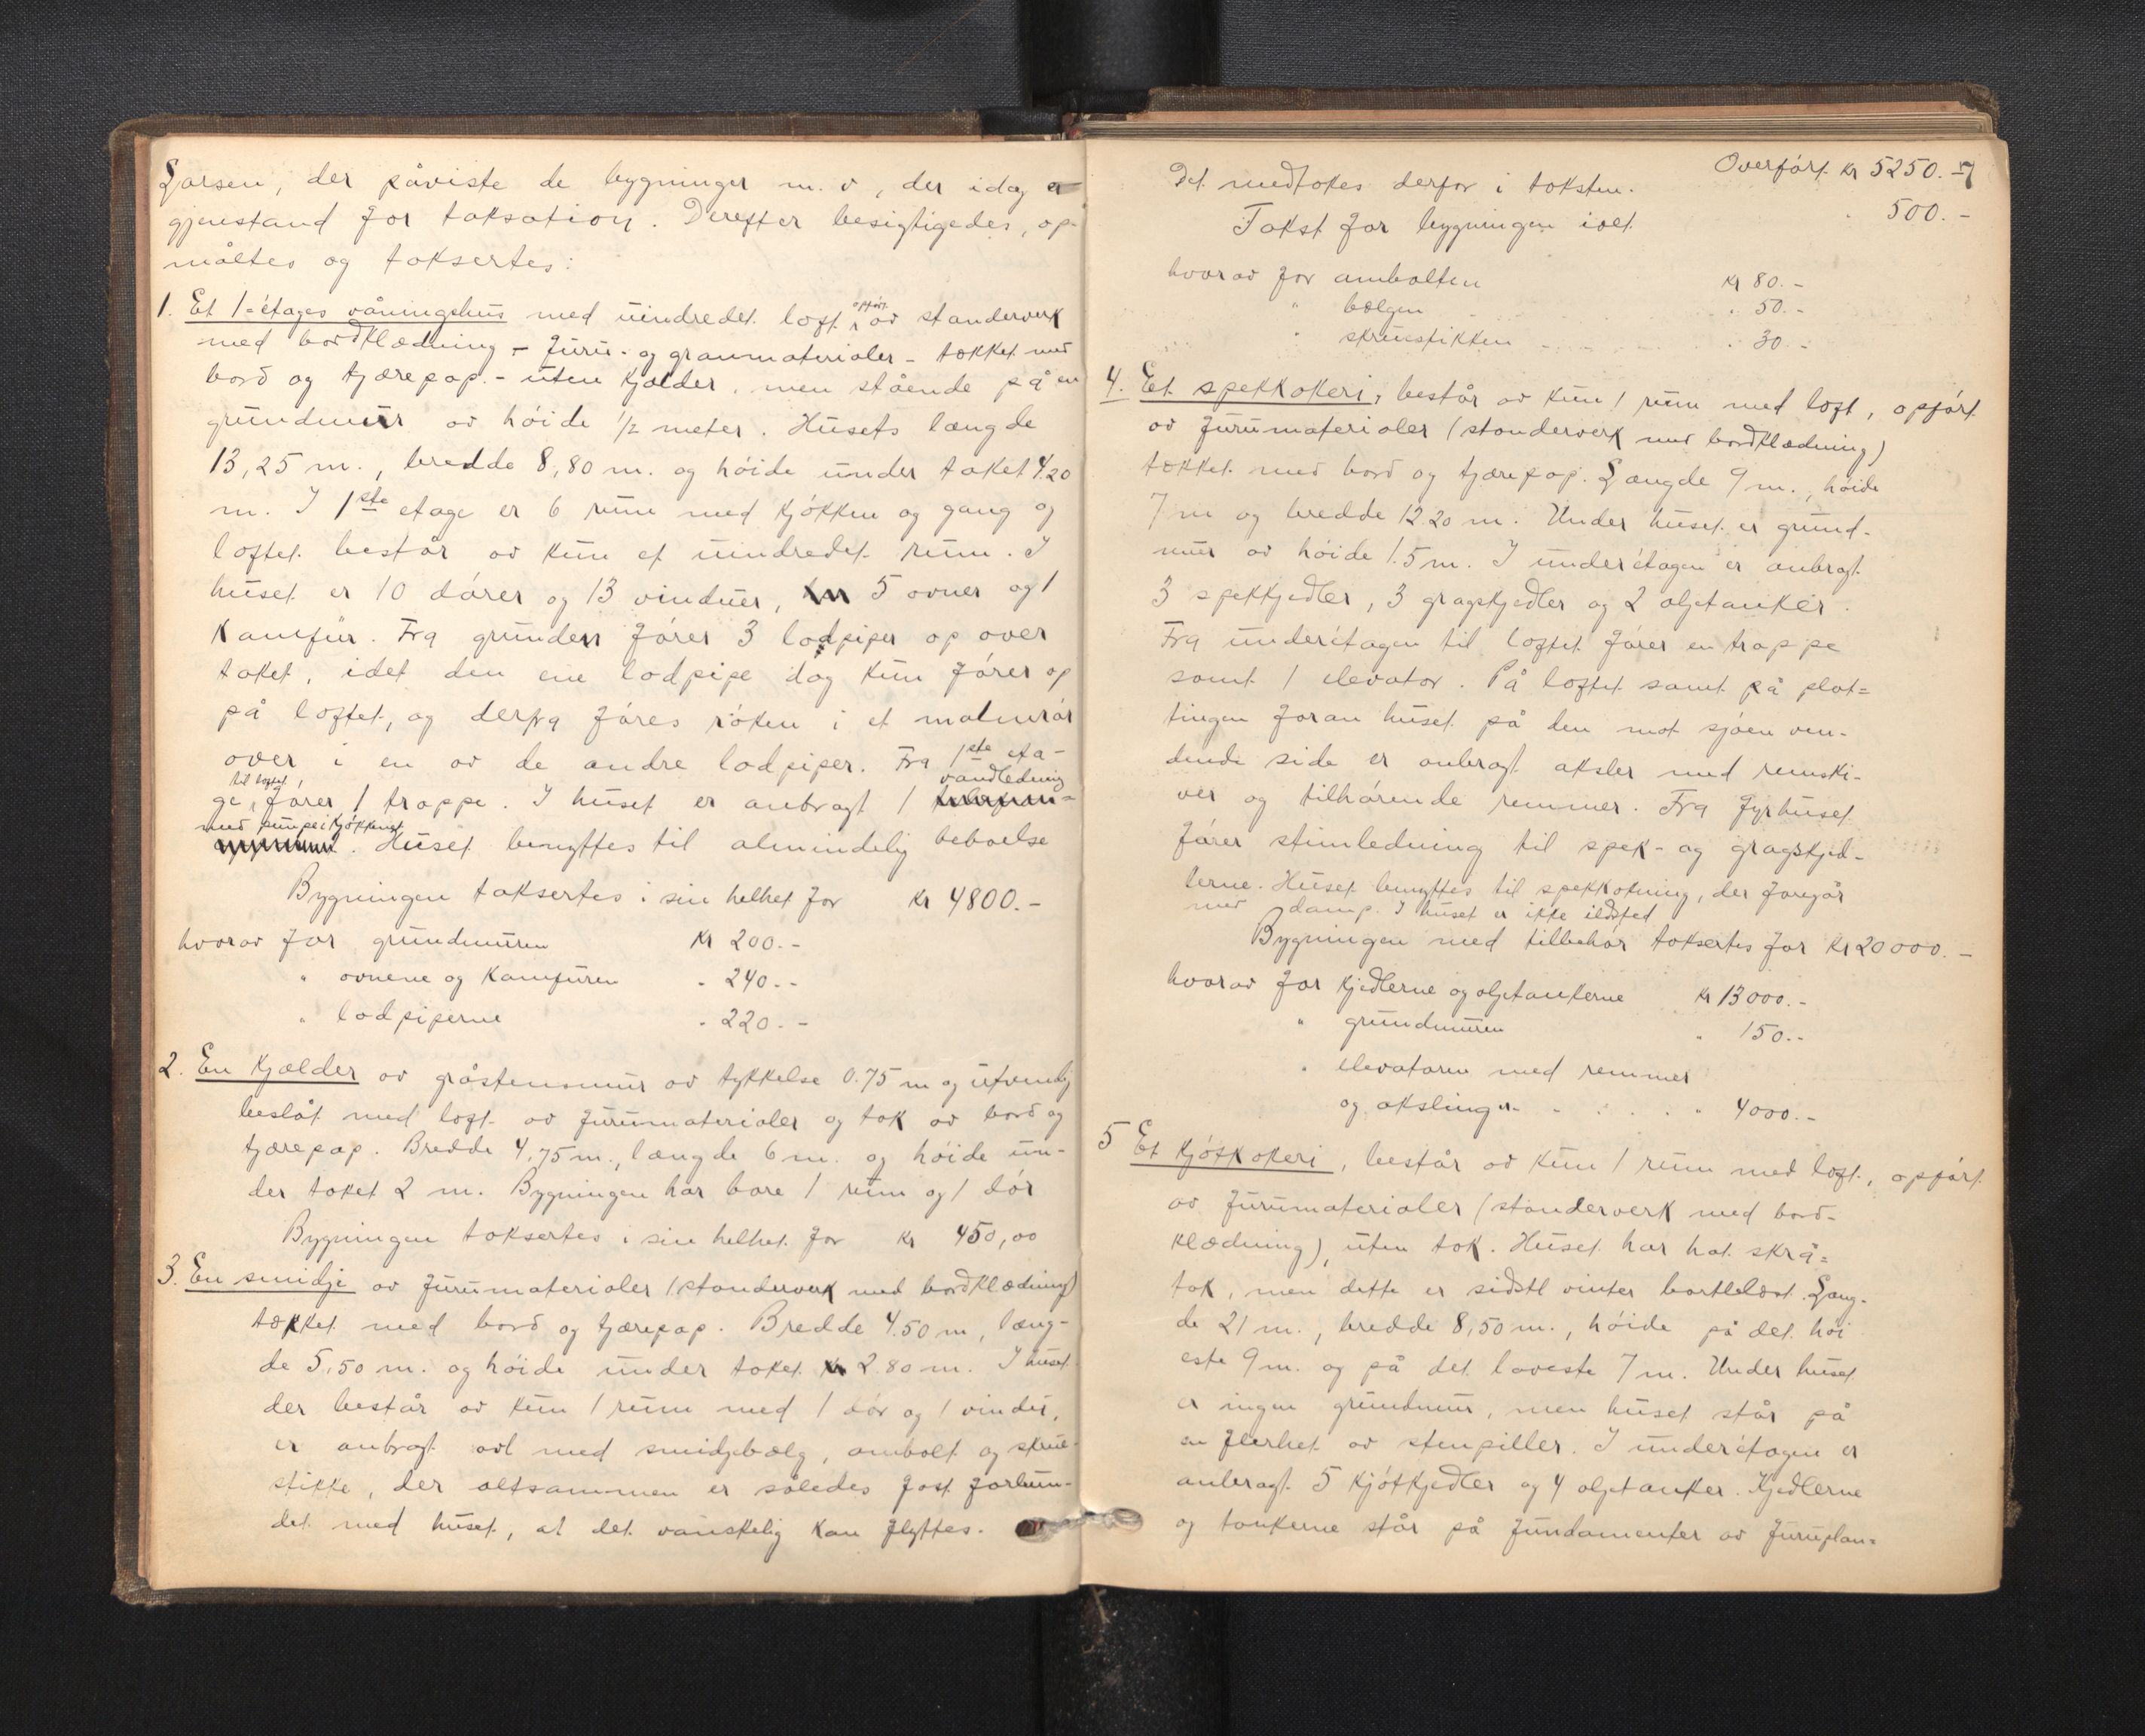 Larsen, der påviste de bygninger m. v, der idag er
gjenstand for taksation. Derefter besigtigedes, op-
måltes og taksertes:
1. Et 1-étages våningshus med uindredet loft, opført av standerverk
med bordklædning - furu- og granmaterialer - tækket med
bord og tjærepap. - uten kjælder, men stående på en
grundmur av høide 1/2 meter. Husets længde
13,25 m., bredde 8,80 m. og høide under taket 4.20
m. I 1ste etage er 6 rum med kjøkken og gang og
loftet består av kun et uindredet rum. I
huset er 10 dører og 13 vinduer, 5 ovner og 1
kamfur. Fra grunden fører 3 lodpiper op over
taket, idet den ene lodpipe dog kun fører op
på loftet, og derfra føres røken i et malmrør
over i en av de andre lodpiper. Fra 1ste eta-
ge til loftet, fører 1 trappe. I huset er anbragt 1 vandledning
med pumpe i kjøkkenet. Huset benyttes til almindelig beboelse
Bygningen taksertes i sin helhet for kr 4800.-
hvorav for grundmuren kr 200.-
" ovnene og kamfuren " 240.-
" lodpiperne " 220.-
2. En kjælder av gråstensmur av tykkelse 0.75 m og utvendig
beslåt med loft av furumaterialer og tak av bord og
tjærepap. Bredde 4,75 m., længde 6 m. og høide un-
der taket 2 m. Bygningen har bare 1 rum og 1 dør
Bygningen taksertes i sin helhet for kr 450,00
3. En smidje av furumaterialer (standerverk med bordklædning)
tækket med bord og tjærepap. Bredde 4.50 m, læng-
de 5,50 m. og høide under taket 2.80 m. I huset
der består av kun 1 rum med 1 dør og 1 vindu,
er anbragt avl med smidjebælg, ambolt og skrue-
stikke, der altsammen er således fast forbun-
det med huset, at det vanskelig kan flyttes.
Overført kr 5250.-
7
Det medtakes derfor i taksten.
Takst for bygningen ialt " 500.-
hvorav for ambolten kr 80.-
" bælgen " 50.-
" skruestikken " 30.-
4. Et spekkokeri, består av kun 1 rum med loft, opført
av furumaterialer (standerverk med bordklædning)
tækket med bord og tjærepap. Længde 9 m., høide
7 m og bredde 12.20 m. Under huset er grund-
mur av høide 1.5 m. I underétagen er anbragt
3 spekkjedler, 3 gragskjedler og 2 oljetanker.
Fra underétagen til loftet fører en trappe
samt 1 elevator. På loftet samt på plat=
tingen foran huset på den mot sjøen ven-
dende side er anbragt aksler med remski-
ver og tilhørende remmer. Fra fyrhuset
fører stimledning til spek- og gragskjed-
lerne. Huset benyttes til spekkokning, der foregår
med damp. I huset er ikke ildsted
Bygningen med tilbehør taksertes for kr 20000.-
hvorav for kjedlerne og oljetankerne kr 13000.-
" grundmuren " 150.-
" elevatoren med remmer
og akslinger " 4000.-
5 Et kjøtkokeri, består av kun 1 rum med loft, opført
av furumaterialer (standerverk med bord-
klædning), uten tak. Huset har hat skrå=
tak, men dette er sidste vinter bortblåst. Læng-
de 21 m., bredde 8,50 m., høide på det høi
este 9 m. og på det laveste 7 m. Under huset
er ingen grundmur, men huset står på
en flerhet av stenpiller. I underétagen er
anbragt 5 kjøtkjedler og 4 oljetanker. Kjedlerne
og tankerne står på fundamenter av furuplan=